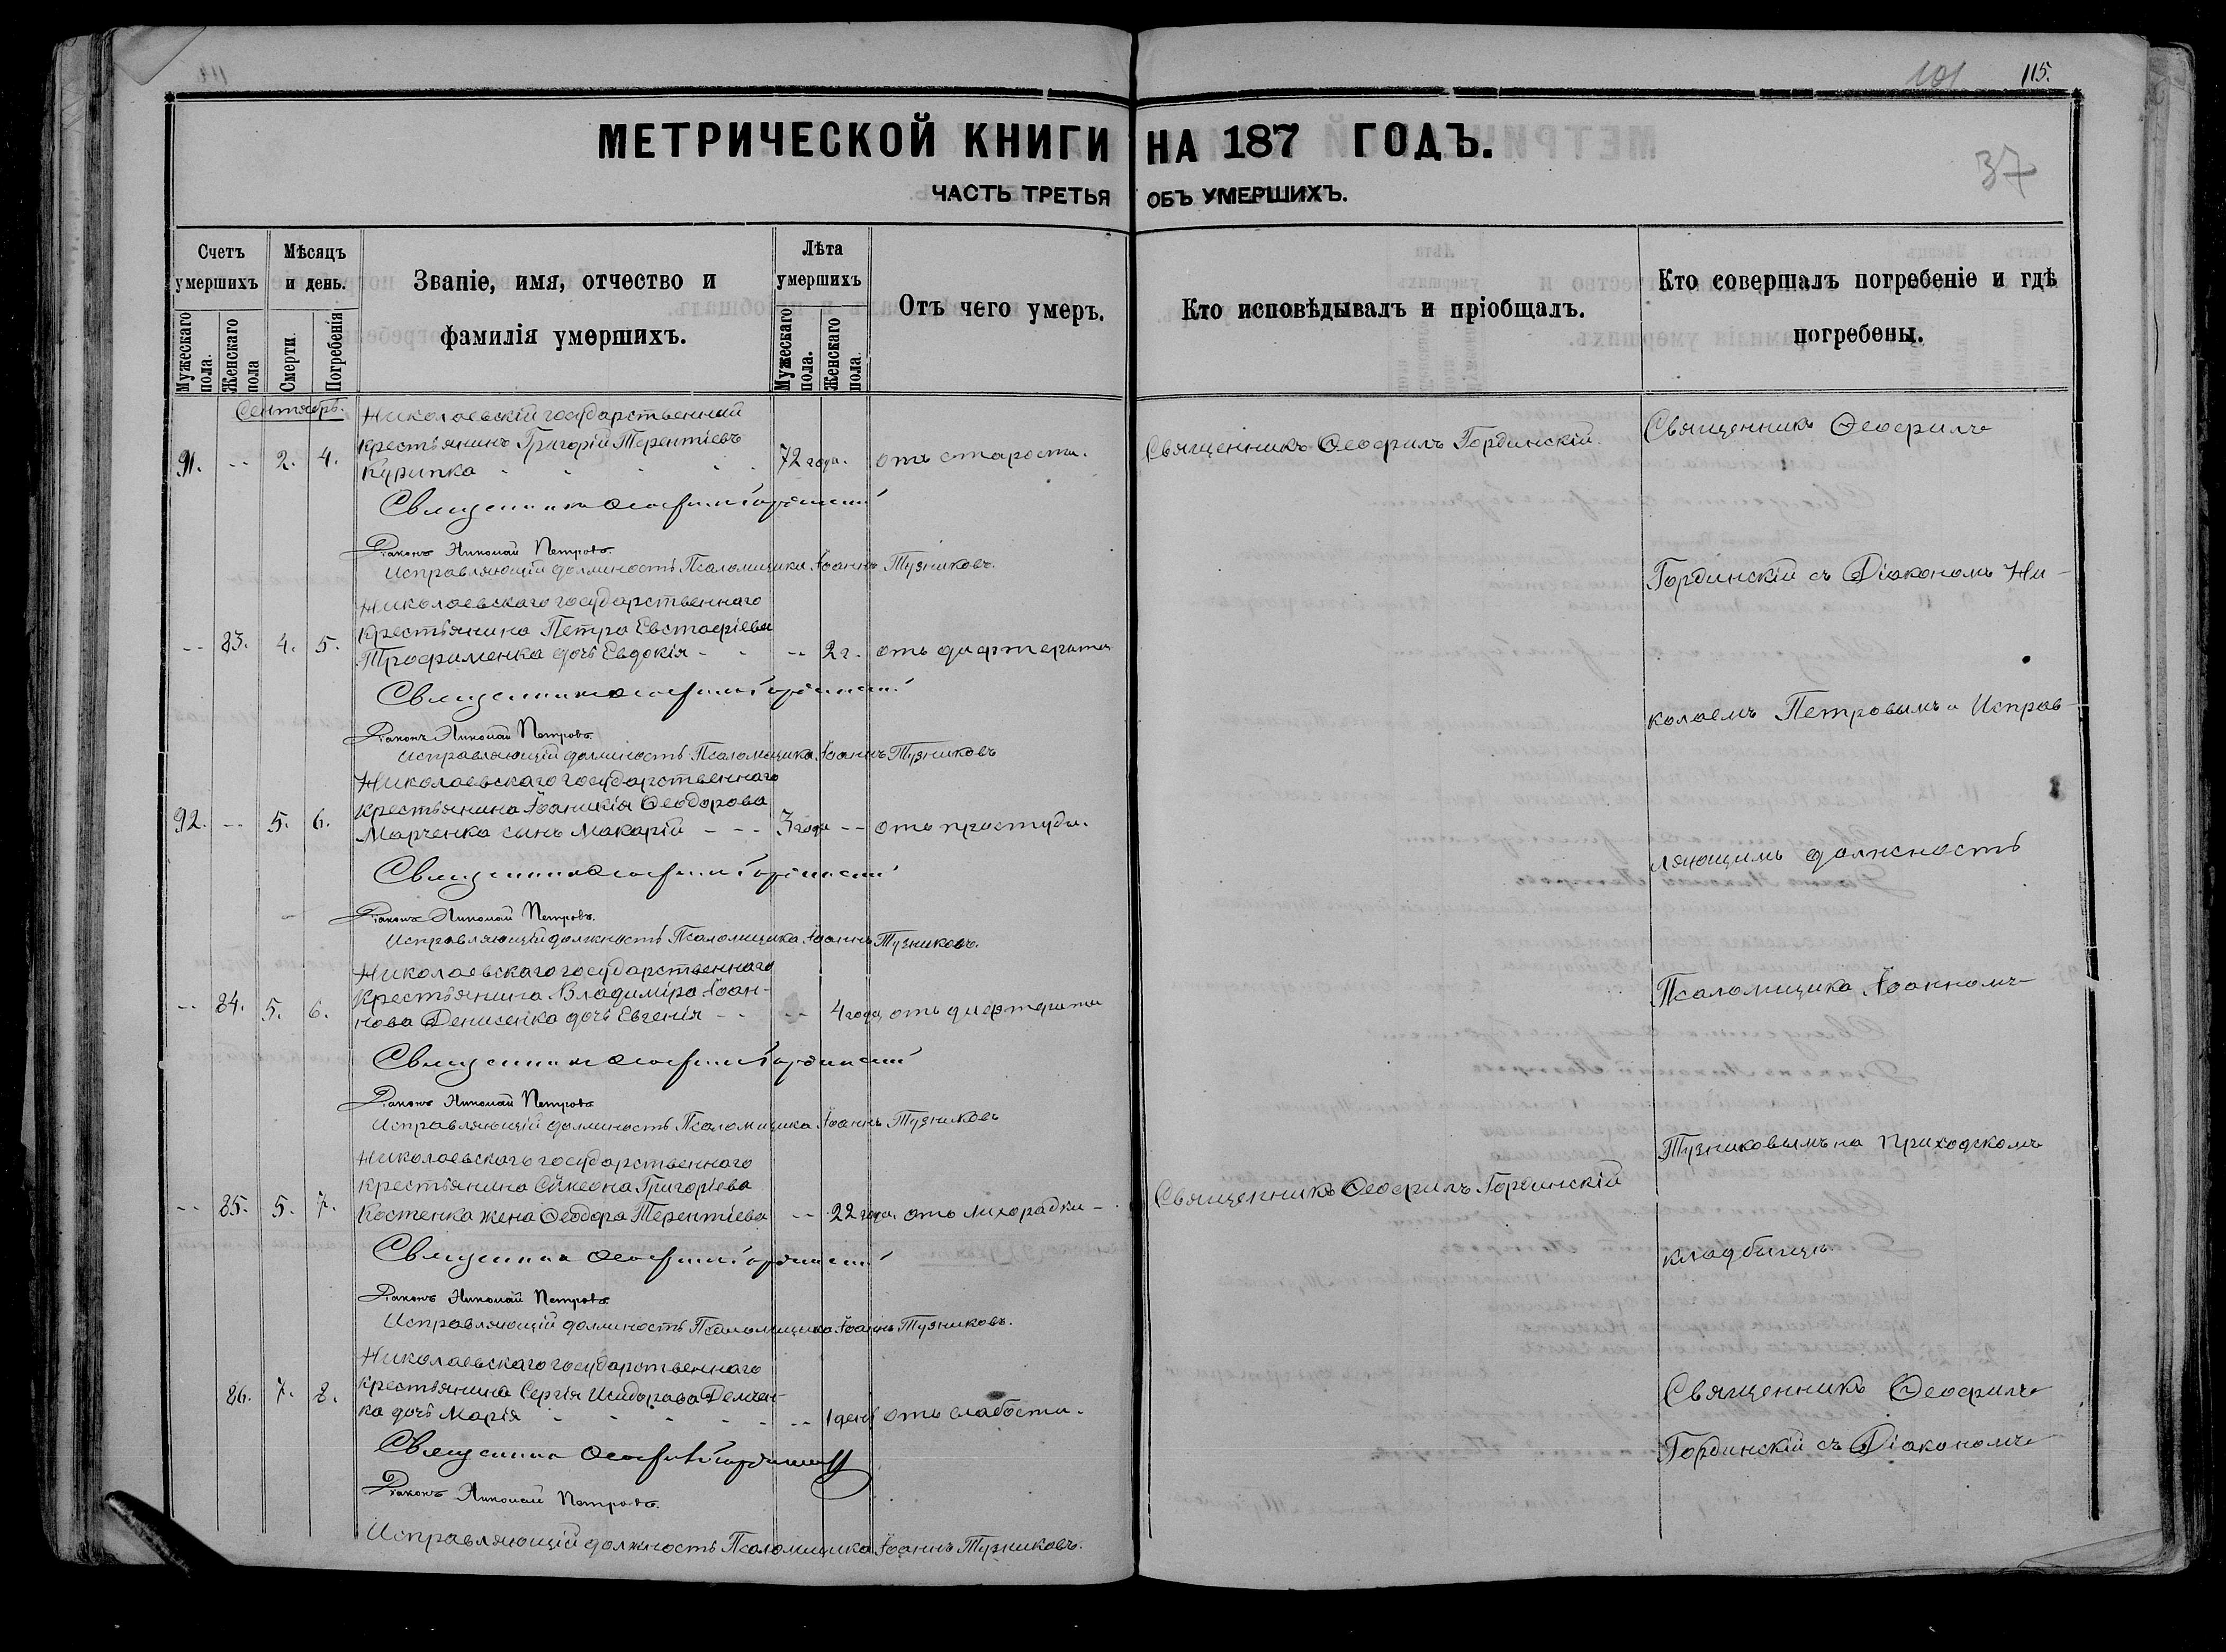 101 115.
МЕТРИЧЕСКОЙ КНИГИ НА 187 ГОДЪ.
37
ЧАСТЬ ТРЕТЬЯ ОБЪ УМЕРШИХЪ.
Счетъ умершихъ
Мужескаго пола.
Женскаго пола
Мѣсяцъ и день.
Смерти.
Погребенія
Званіе, имя, отчество и
фамилія умершихъ.
Лѣта умершихъ
Мужескаго пола.
Женскаго пола.
Отъ чего умеръ.
Кто исповѣдывалъ и пріобщалъ.
Кто совершалъ погребеніе и гдѣ
погребены.
Сентябрь.
Николаевскій государственный
крестьянинъ Григорій Терентіевъ
91. -- 2. 4. Курипка 72 года. отъ старости. Священникъ Ѳеофилъ Гординскій.
Священникъ Ѳеофилъ Гординскій
Діаконъ Николай Петровъ.
Исправляющій должность Псаломщика Іоаннъ Тузниковъ.
Николаевскаго государственнаго
крестьянина Петра Евстафіева
-- 83. 4. 5. Трофименка дочь Евдокія -- 2 г. отъ дифтерита
Священникъ Ѳеофилъ Гординскій
Діаконъ Николай Петровъ.
Исправляющій должность Псаломщика Іоаннъ Тузниковъ
Николаевскаго государственнаго
крестьянина Іоаникія Ѳеодорова
92. -- 5. 6. Марченка сынъ Макарій - - - 3 года -- отъ простуды.
Священникъ Ѳеофилъ Гординскій
Діаконъ Николай Петровъ.
Исправляющій должность Псаломщика Іоаннъ Тузниковъ.
Николаевскаго государственнаго
крестьянина Владиміра Іоан-
-- 84. 5. 6. нова Денисенка дочь Евгенія -- 4 года отъ дифтерита
Священникъ Ѳеофилъ Гординскій
Діаконъ Николай Петровъ
Исправляющій должность Псаломщика Іоаннъ Тузниковъ
Николаевскаго государственнаго
крестьянина Сѵмеона Григоріева
-- 85. 5. 7. Костенка жена Ѳеодора Терентіева -- 22 года. отъ лихорадки - Священникъ Ѳеофилъ Гординскій
Священникъ Ѳеофилъ Гординскій
Діаконъ Николай Петровъ.
Исправляющій должность Псаломщика Іоаннъ Тузниковъ.
Николаевскаго государственнаго
крестьянина Сергія Исидорова Демчен-
86. 7. 8. ка дочь Марія -- 1 день отъ слабости.
Священникъ Ѳеофилъ Гординскій
Діаконъ Николай Петровъ.
Исправляющій должность Псаломщика Іоаннъ Тузниковъ.
Священникъ Ѳеофилъ
Гординскій съ Діакономъ Ни-
колаемъ Петровымъ и Исправ-
ляющимъ должность
Псаломщика Іоанномъ
Тузниковымъ на приходскомъ
кладбищѣ.
Священникъ Ѳеофилъ
Гординскій съ Діакономъ